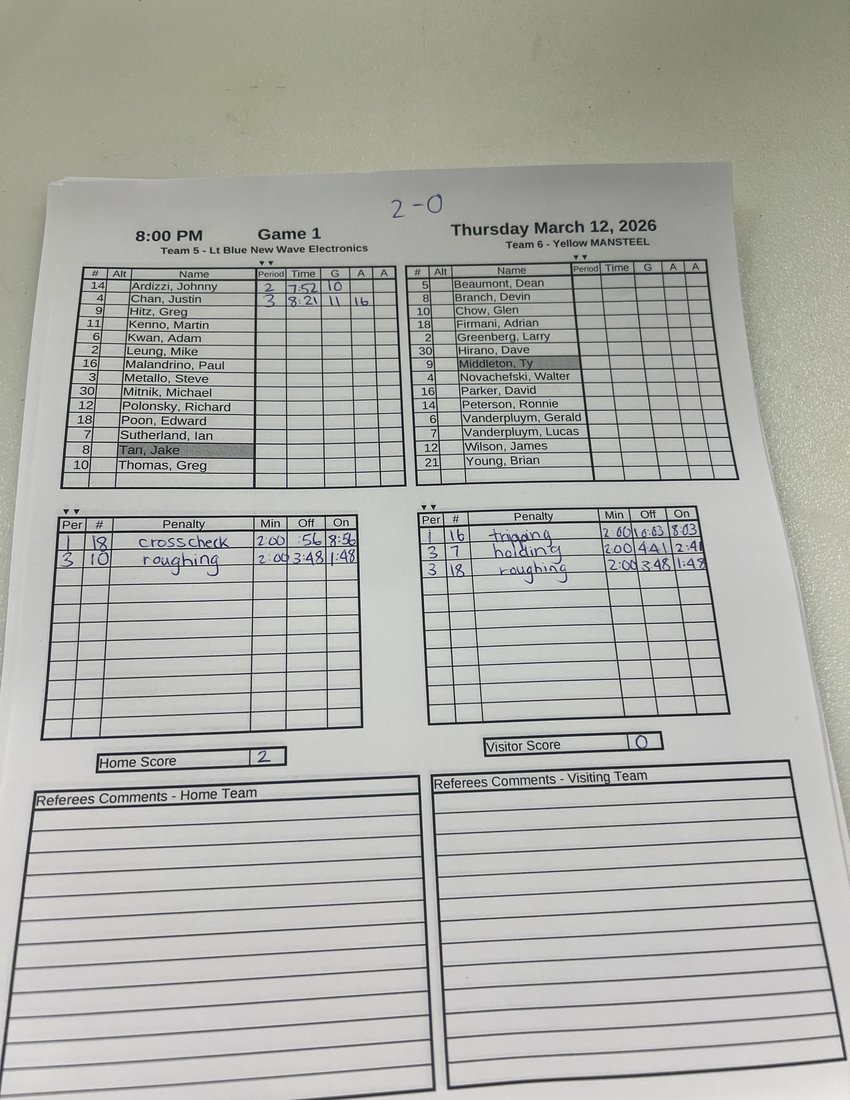 2-0
8:00 PM Game 1 Thursday March 12, 2026
Team 5 - Lt Blue New Wave Electronics Team 6 - Yellow MANSTEEL
# Alt Name Period Time G A A
14 Ardizzi, Johnny 2 7:52 10
4 Chan, Justin 3 8:21 11 16
9 Hitz, Greg
11 Kenno, Martin
6 Kwan, Adam
2 Leung, Mike
16 Malandrino, Paul
3 Metallo, Steve
30 Mitnik, Michael
12 Polonsky, Richard
18 Poon, Edward
7 Sutherland, Ian
8 Tan, Jake
10 Thomas, Greg
# Alt Name Period Time G A A
5 Beaumont, Dean
8 Branch, Devin
10 Chow, Glen
18 Firmani, Adrian
2 Greenberg, Larry
30 Hirano, Dave
9 Middleton, Ty
4 Novachefski, Walter
16 Parker, David
14 Peterson, Ronnie
6 Vanderpluym, Gerald
7 Vanderpluym, Lucas
12 Wilson, James
21 Young, Brian
Per # Penalty Min Off On
1 18 crosscheck 2:00 :56 8:56
3 10 roughing 2:00 3:48 1:48
Per # Penalty Min Off On
1 16 2:00 10:03 8:03
3 7 holding 2:00 4:41 2:41
3 18 roughing 2:00 3:48 1:48
Home Score 2
Visitor Score 0
Referees Comments - Home Team
Referees Comments - Visiting Team